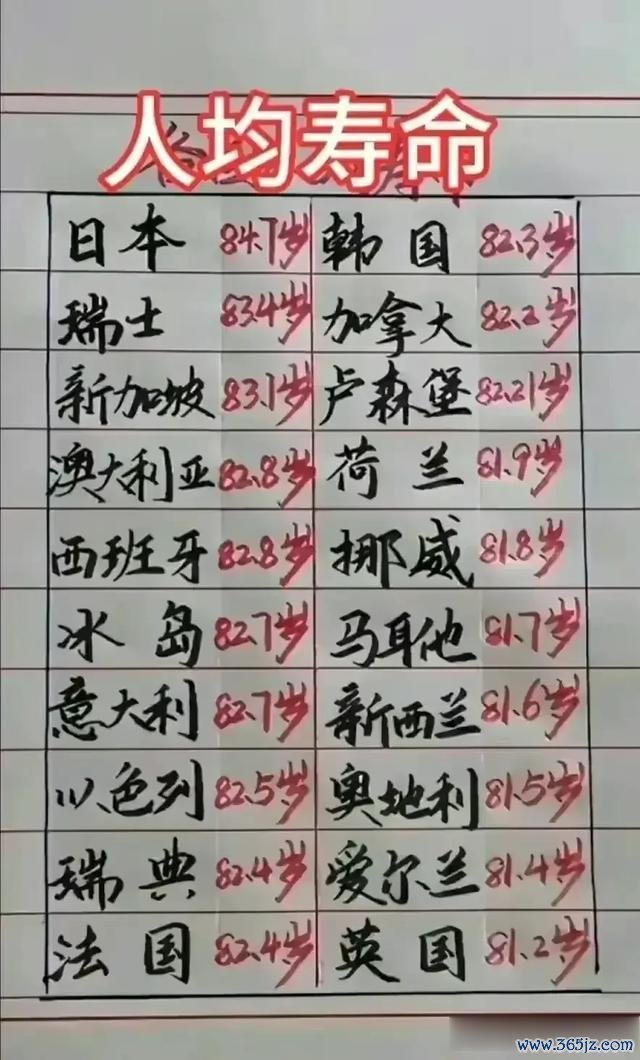 人均寿命
日本 84.7岁 韩国 82.3岁
瑞士 83.4岁 加拿大 82.2岁
新加坡 83.1岁 卢森堡 82.21岁
澳大利亚 82.8岁 荷兰 81.9岁
西班牙 82.8岁 挪威 81.8岁
冰岛 82.7岁 马耳他 81.7岁
意大利 82.7岁 新西兰 81.6岁
以色列 82.5岁 奥地利 81.5岁
瑞典 82.4岁 爱尔兰 81.4岁
法国 82.4岁 英国 81.2岁
www.365jz.com